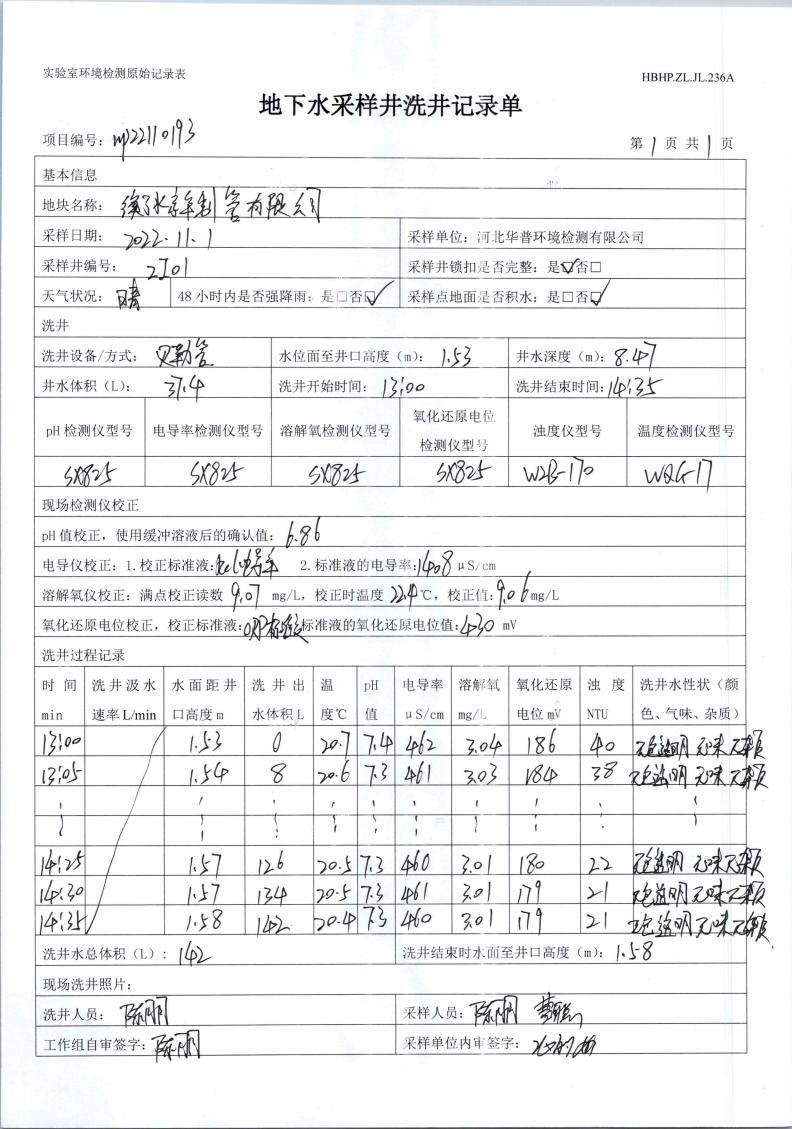 实验室环境检测原始记录表
HBHP.ZL.JL.236A
地下水采样井洗井记录单
项目编号：
第 1 页 共 1 页
基本信息
地块名称： 衡水 制管有限公司
采样日期： 2022.11.1 采样单位：河北华普环境检测有限公司
采样井编号： 2J01 采样井锁扣是否完整：是☑否□
天气状况： 晴 48 小时内是否强降雨：是□否☑ 采样点地面是否积水：是□否☑
洗井
洗井设备/方式： 贝勒管 水位面至井口高度（m）： 1.53 井水深度（m）：8.47
井水体积（L）： 37.4 洗井开始时间： 13:00 洗井结束时间：14:35
pH 检测仪型号 电导率检测仪型号 溶解氧检测仪型号 氧化还原电位检测仪型号 浊度仪型号 温度检测仪型号
SX825 SX825 SX825 SX825 WZB-170 WQG-17
现场检测仪校正
pH 值校正，使用缓冲溶液后的确认值： 6.86
电导仪校正：1.校正标准液： 2.标准液的电导率：1408 μS/cm
溶解氧仪校正：满点校正读数 9.07 mg/L，校正时温度 22.4 ℃，校正值：9.06 mg/L
氧化还原电位校正，校正标准液： 标准液的氧化还原电位值：430 mV
洗井过程记录
时 间 min 洗井汲水速率 L/min 水面距井口高度 m 洗井出水体积 L 温度℃ pH 值 电导率 μS/cm 溶解氧 mg/L 氧化还原电位 mV 浊度 NTU 洗井水性状（颜色、气味、杂质）
13:00 1.53 0 20.7 7.4 462 3.04 186 40 无色透明 无味 无杂质
13:05 1.54 8 20.6 7.3 461 3.03 184 38 无色透明 无味 无杂质
14:25 1.57 126 20.5 7.3 460 3.01 180 22 无色透明 无味 无杂质
14:30 1.57 134 20.5 7.3 461 3.01 179 21 无色透明 无味 无杂质
14:35 1.58 142 20.4 7.3 460 3.01 179 21 无色透明 无味 无杂质
洗井水总体积（L）：142 洗井结束时水面至井口高度（m）：1.58
现场洗井照片：
洗井人员： 陈朋 采样人员： 陈朋
工作组自审签字：陈朋 采样单位内审签字：